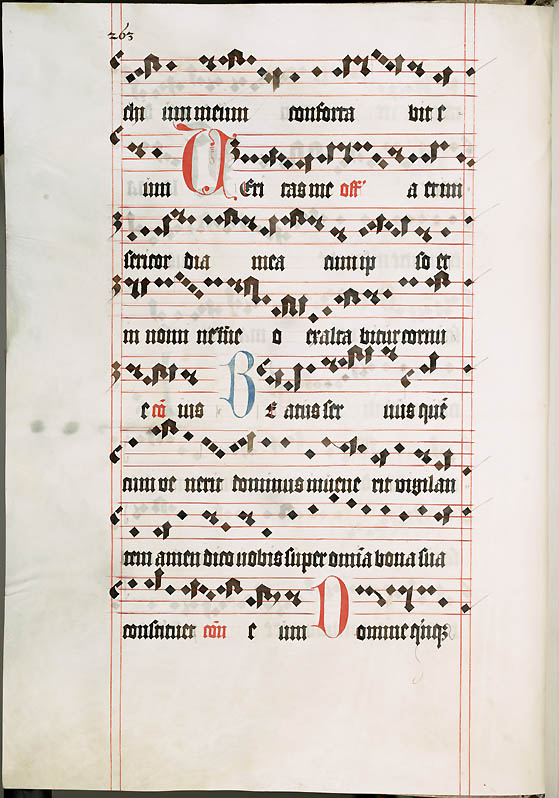 263
chi ium meum conforta bit e
um VEri tas me off' a et mi
sericor dia mea cum ip so et
in nomi ne me o exalta bitur cornu
e cō ius BE atus ser uus quē
cum ve nerit dominus inuene rit vigilan
tem amen dico vobis super omīa bona sua
constituet cōn e um Domine quīqȝ